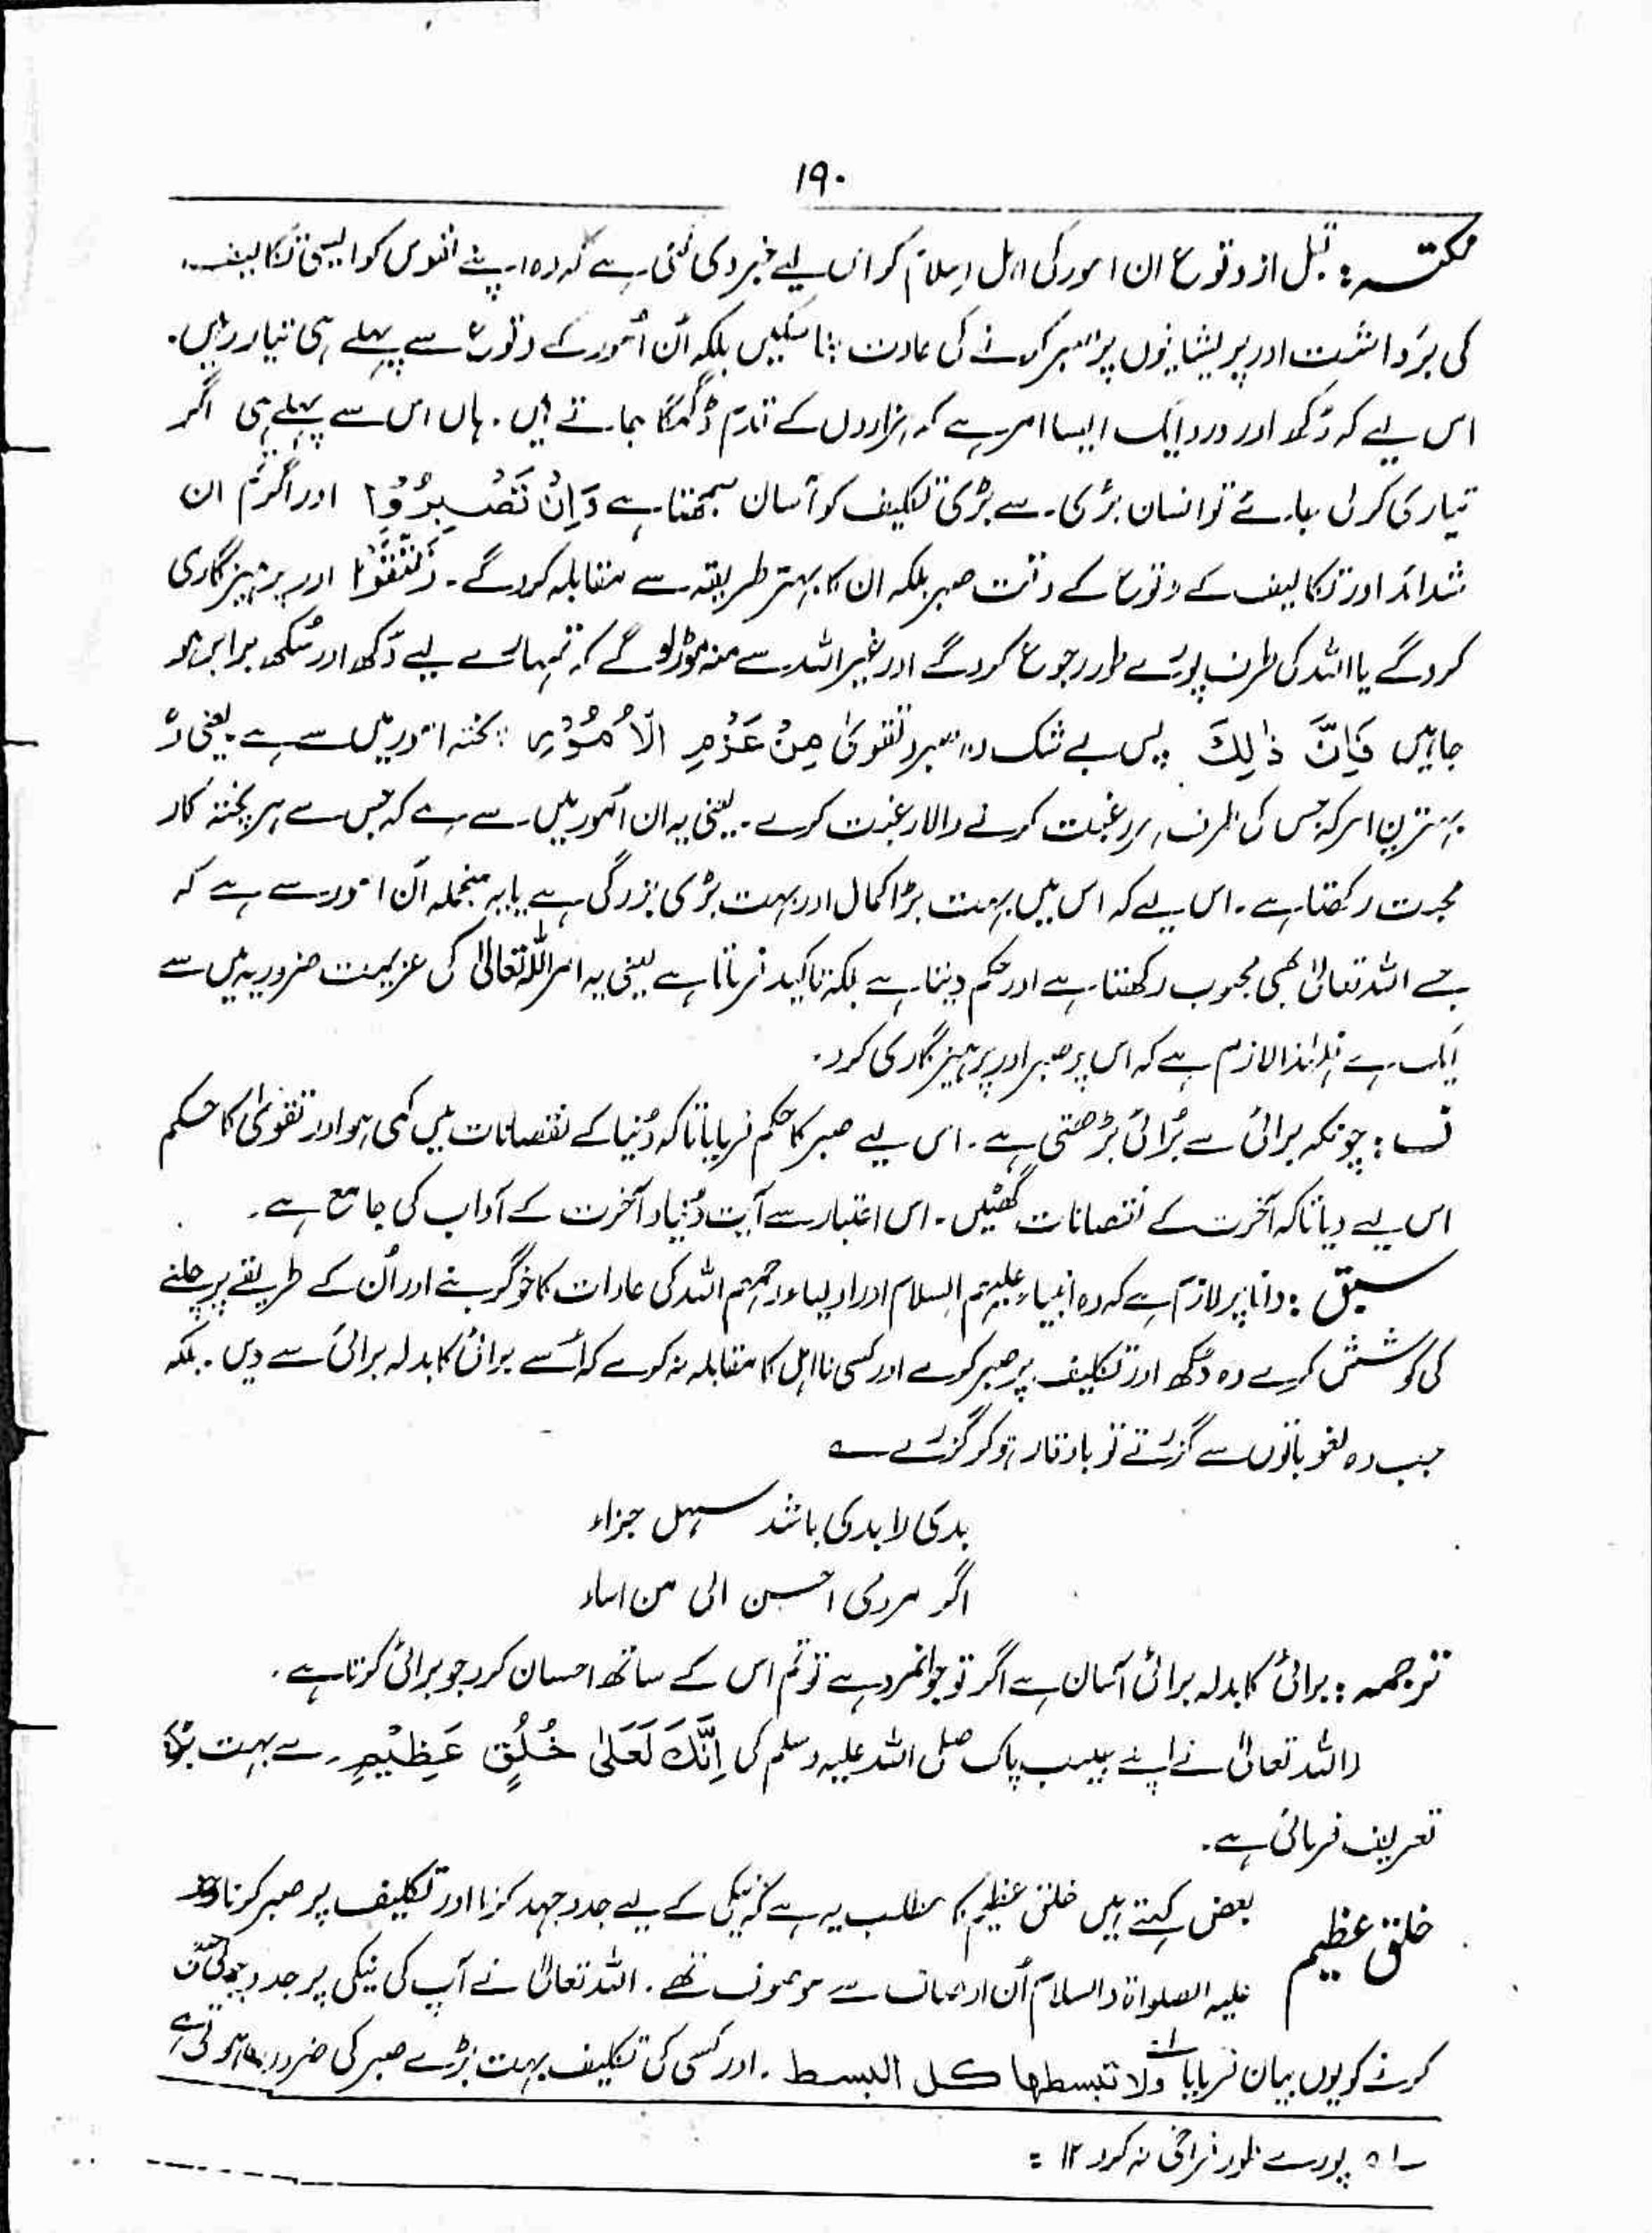 ۱۹۰
نکتہ : قبل از وقوع ان امور کی اہل اسلام کو اس لیے خبر دی گئی ہے کہ وہ اپنے نفوس کو ایسی تکالیف
کی برداشت اور پریشانیوں پر صبر کرنے کی عادت بنا سکیں بلکہ ان اُمور کے وقوع سے پہلے ہی تیار رہیں۔
اس لیے کہ دُکھ اور درد ایک ایسا امر ہے کہ ہزاروں کے قدم ڈگمگا جاتے ہیں۔ ہاں اس سے پہلے ہی اگر
تیاری کرلی جائے تو انسان بڑی سے بڑی تکلیف کو آسان سمجھتا ہے وَاِنْ تَصْبِرُوْا اور اگر تم ان
شدائد اور تکالیف کے وقوع کے وقت صبر بلکہ ان کا بہتر طریقہ سے مقابلہ کرو گے۔ وَتَتَّقُوْا اور پرہیزگاری
کرو گے یا اللہ کی طرف پورے طور رجوع کرو گے اور غیر اللہ سے منہ موڑلو گے کہ تمہارے لیے دُکھ اور سُکھ برابر ہو
جاہیں فَاِنَّ ذٰلِکَ پس بے شک وہ صبر و تقویٰ مِنْ عَزْمِ الْاُمُوْرِ پختہ امور میں سے ہے۔ یعنی وُہ
بہترین امر کہ جس کی طرف ہر رغبت کرنے والا رغبت کرے۔ یعنی یہ ان اُمور میں سے ہے کہ جس سے ہر پختہ کار
محبت رکھتا ہے۔ اس لیے کہ اس میں بہت بڑا کمال اور بہت بڑی بزرگی ہے یا یہ منجملہ اُن امور سے ہے کہ
جسے اللہ تعالیٰ بھی محبوب رکھتا ہے اور حکم دیتا ہے بلکہ تاکید فرماتا ہے یعنی یہ امر اللہ تعالیٰ کی عزیمت ضروریہ میں سے
ایک ہے فلہٰذا لازم ہے کہ اس پر صبر اور پرہیزگاری کرو۔
ف : چونکہ برائی سے بُرائی بڑھتی ہے۔ اس لیے صبر کا حکم فرمایا تاکہ دُنیا کے نقصانات میں کمی ہو اور تقویٰ کا حکم
اس لیے دیا تاکہ آخرت کے نقصانات گھٹیں۔ اس اعتبار سے آیت دُنیا و آخرت کے آداب کی جامع ہے۔
سبق : دانا پر لازم ہے کہ وہ انبیاء علیہم السلام اور اولیاء رحمہم اللہ کی عادات کا خوگر بنے اور اُن کے طریقے پر چلنے
کی کوشش کرے وہ دُکھ اور تکلیف پر صبر کرے اور کسی نااہل کا مقابلہ نہ کرے کہ اُسے برائی کا بدلہ برائی سے دیں۔ بلکہ
جب وہ لغو باتوں سے گزرے تو باوقار ہو کر گزرے ؎
بدی را بدی باشد سہل جزاء
اگر مردی احسن الی من اساء
ترجمہ : برائی کا بدلہ برائی آسان ہے اگر تو جوانمرد ہے تو تم اس کے ساتھ احسان کرو جو برائی کرتا ہے۔
(اللہ تعالیٰ نے اپنے حبیب پاک صلی اللہ علیہ وسلم کی اِنَّکَ لَعَلٰی خُلُقٍ عَظِیْمٍ سے بہت بڑی
تعریف فرمائی ہے۔
خلق عظیم
بعض کہتے ہیں خلق عظیم کا مطلب یہ ہے کہ نیکی کے لیے جدوجہد کرنا اور تکلیف پر صبر کرنا
علیہ الصلواۃ والسلام اُن اوصاف سے موصوف تھے۔ اللہ تعالیٰ نے آپ کی نیکی پر جدوجہد
کرنے کو یوں بیان فرمایا ولا تبسطھا کل البسط۔ اور کسی کی تکلیف بہت بڑے صبر کی ضرورت ہوتی ہے
؎۱ پورے طور فراخی نہ کرو ۱۲ =